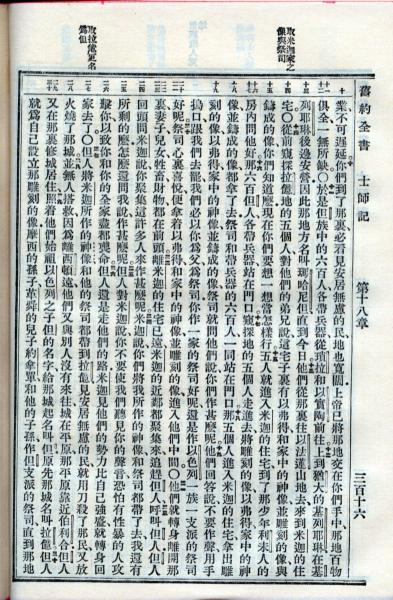 舊約全書 士師記 第十八章 三百十六
取米迦家之
像與祭司
取拉億更名
爲但
業不可遲延你們到了那裏必看見安居無慮的民地也寬闊上帝已將那地交在你們手中那地百物
俱全一無所缺〇於是但族中的六百人各帶兵器從瑣拉和以實陶前往上到猶大的基列耶琳在基
列耶琳後邊安營因此那地方名叫瑪哈尼但直到今日他們從那裏往以法蓮山地去來到米迦的住
宅〇從前窺探拉億地的五個人對他們的弟兄說這宅子裏有以弗得和家中的神像並雕刻的像與
鑄成的像你們知道麼現在你們要想一想當怎樣行五人就進入米迦的住宅到了那少年利未人的
房內問他好那六百但人各帶兵器站在門口窺探地的五個人走進去將雕刻的像以弗得家中的神
像並鑄成的像都拿了去祭司和帶兵器的六百人一同站在門口那五個人進入米迦的住宅拿出雕
刻的像以弗得家中的神像並鑄成的像祭司就問他們說你們作甚麼呢他們回答說不要作聲用手
摀口跟我們去罷我們必以你爲父爲祭司你作一家的祭司好呢還是作以色列一族一支派的祭司
好呢祭司心裏喜悅便拿着以弗得和家中的神像並雕刻的像進入他們中間〇他們就轉身離開那
裏妻子兒女牲畜財物都在前頭離米迦的住宅已遠米迦的近鄰都聚集來追趕但人呼叫但人但人
回頭問米迦說你聚集這許多人來作甚麼呢米迦說你們將我所作的神像和祭司都帶了去我還有
所剩的麼怎麼還問我說作甚麼呢但人對米迦說你不要使我們聽見你的聲音恐怕有性暴的人攻
擊你以致你和你的全家盡都喪命但人還是走他們的路米迦見他們的勢力比自己強盛就轉身回
家去了〇但人將米迦所作的神像和他的祭司都帶到拉億見安居無慮的民就用刀殺了那民又放
火燒了那城並無人搭救因爲離西頓遠他們又與別人沒有來往城在平原那平原靠近伯利合但人
又在那裏修城居住照着他們始祖以色列之子但的名字給那城起名叫但原先那城名叫拉億但人
就爲自己設立那雕刻的像摩西的孫子革舜的兒子約拿單和他的子孫作但支派的祭司直到那地